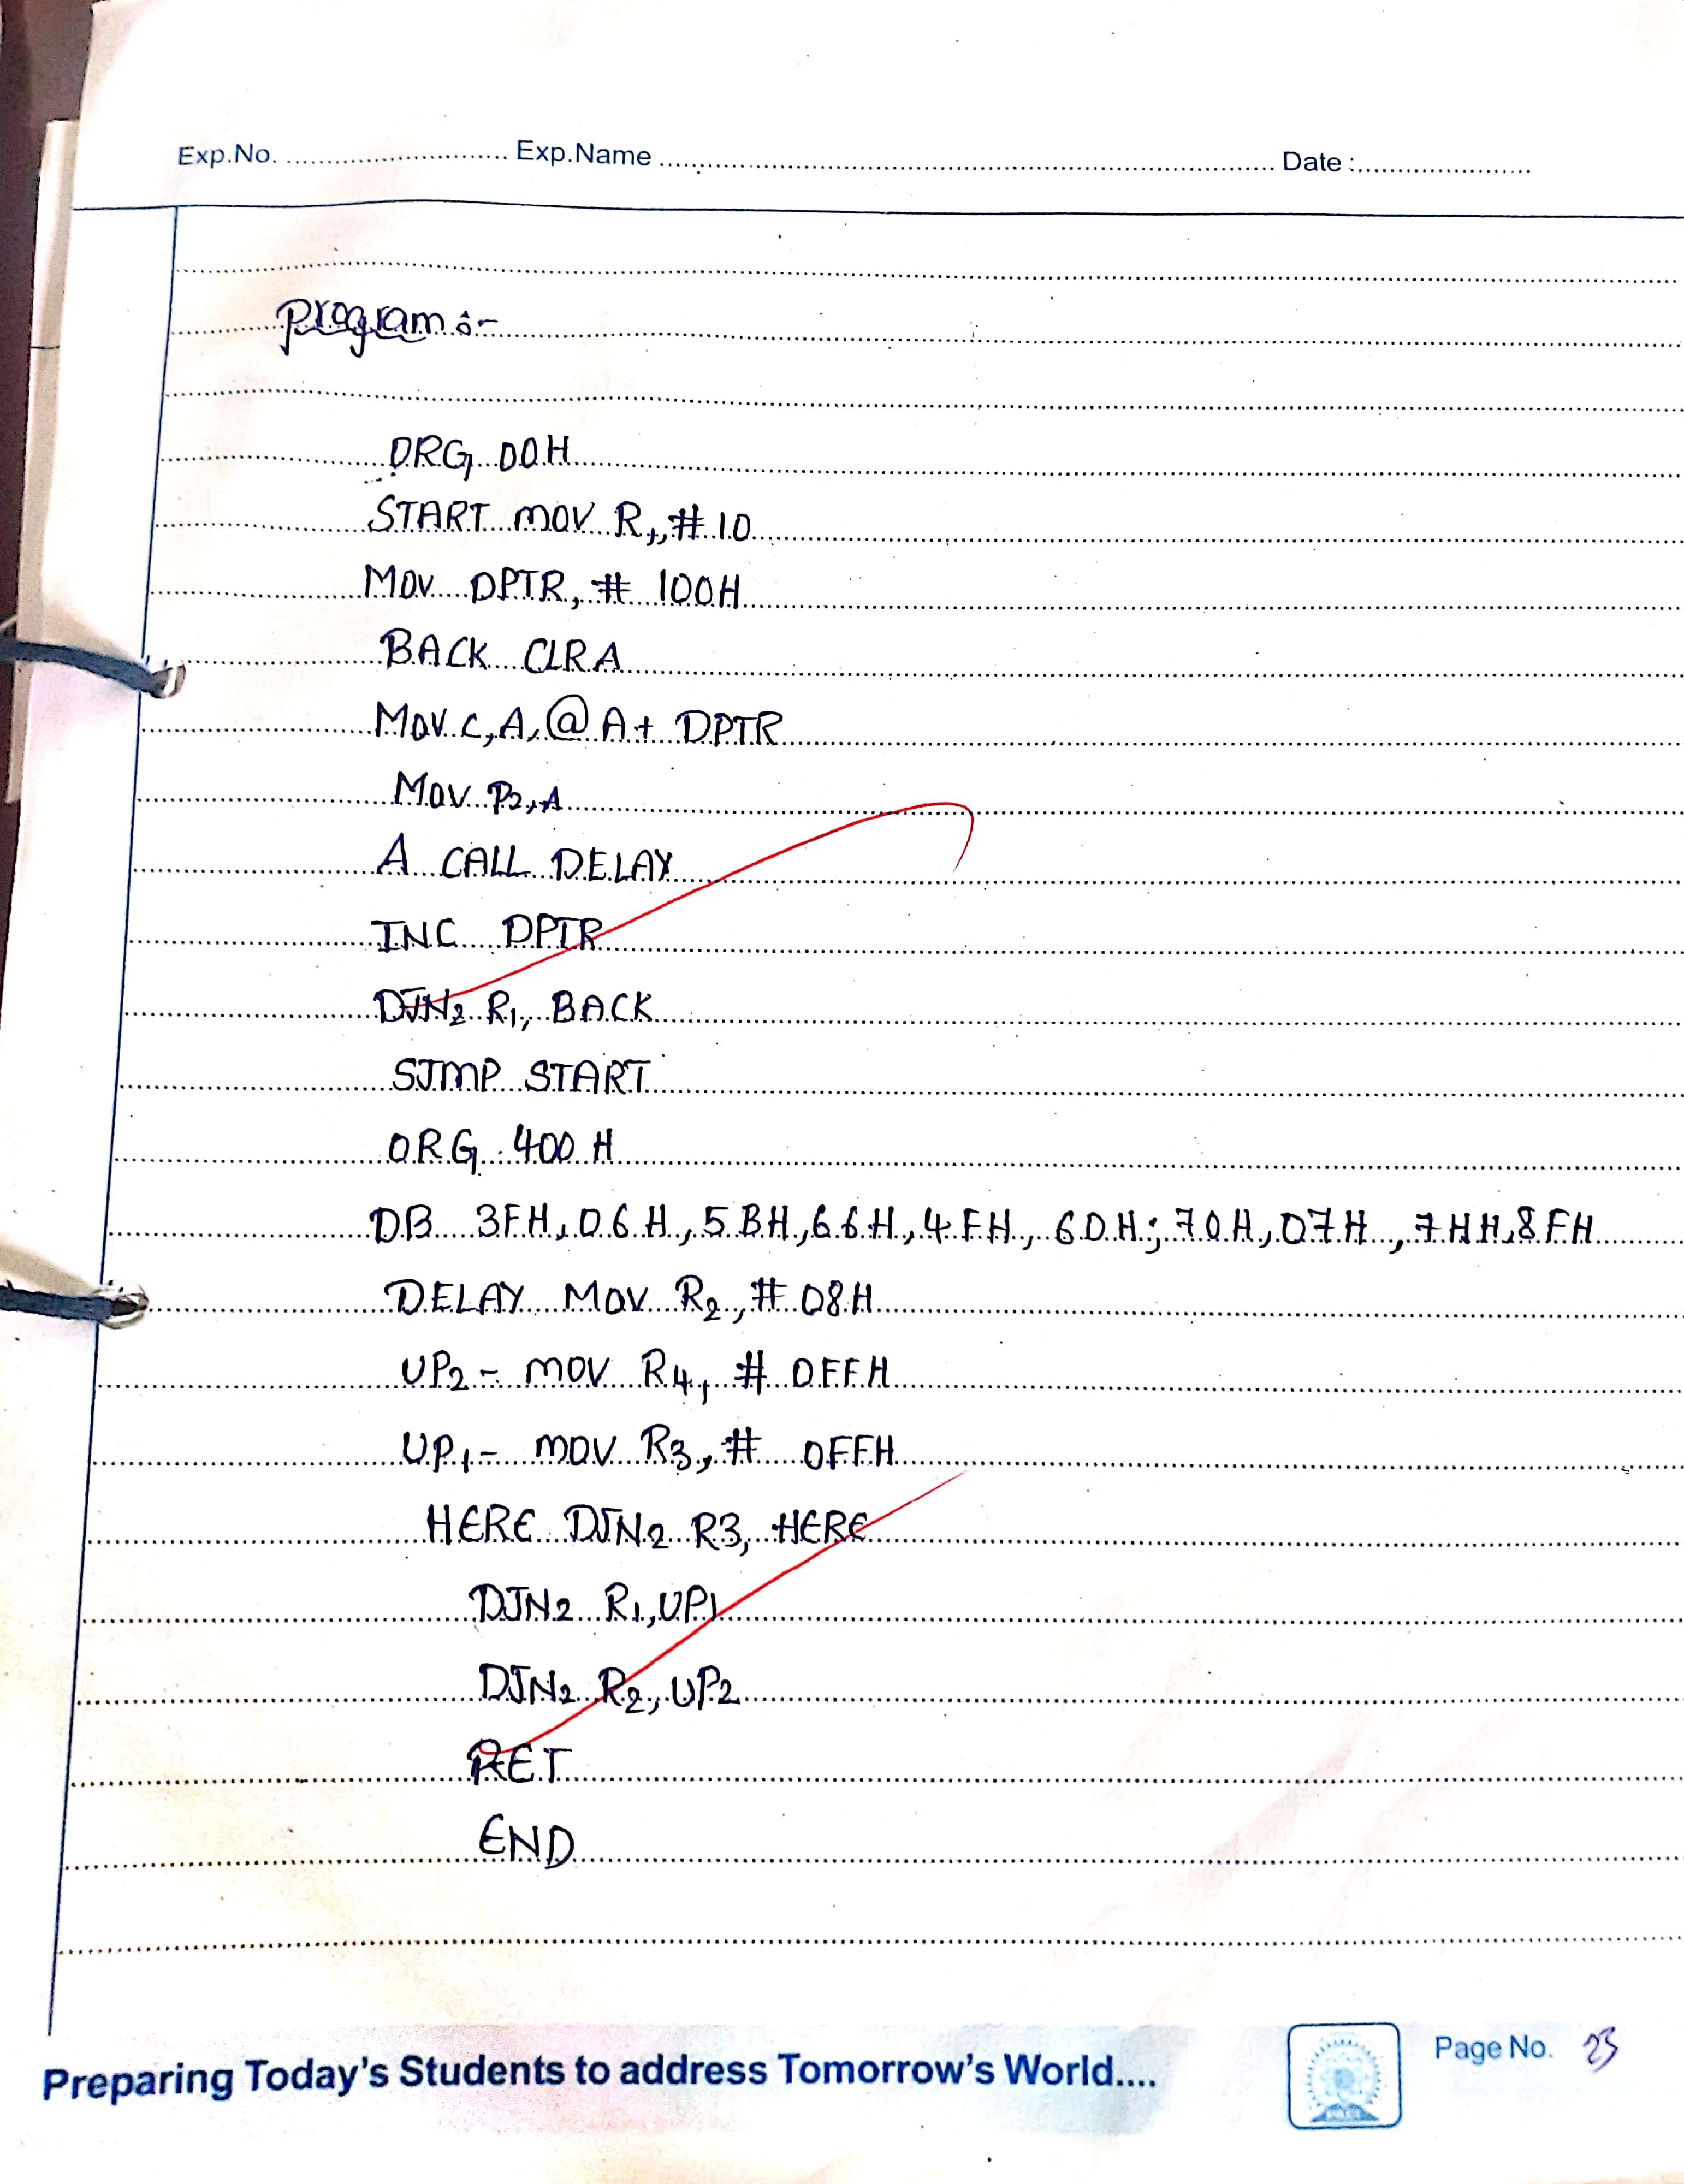 Exp.No. Exp.Name Date :
Program :-
ORG 00H
START MOV R1, # 10
MOV DPTR, # 100H
BACK CLR A
MOV C, A, @ A+ DPTR
MOV P2, A
A CALL DELAY
INC DPTR
DJN2 R1, BACK
SJMP START
ORG 400 H
DB 3FH, 06H, 5BH, 66H, 4FH, 6DH; 70H, 07H, 7HH, 8FH
DELAY MOV R2, # 08H
UP2 - MOV R4, # 0FFH
UP1 - MOV R3, # 0FFH
HERE DJN2 R3, HERE
DJN2 R1, UP1
DJN2 R2, UP2
RET
END
Preparing Today's Students to address Tomorrow's World....
Page No. 23